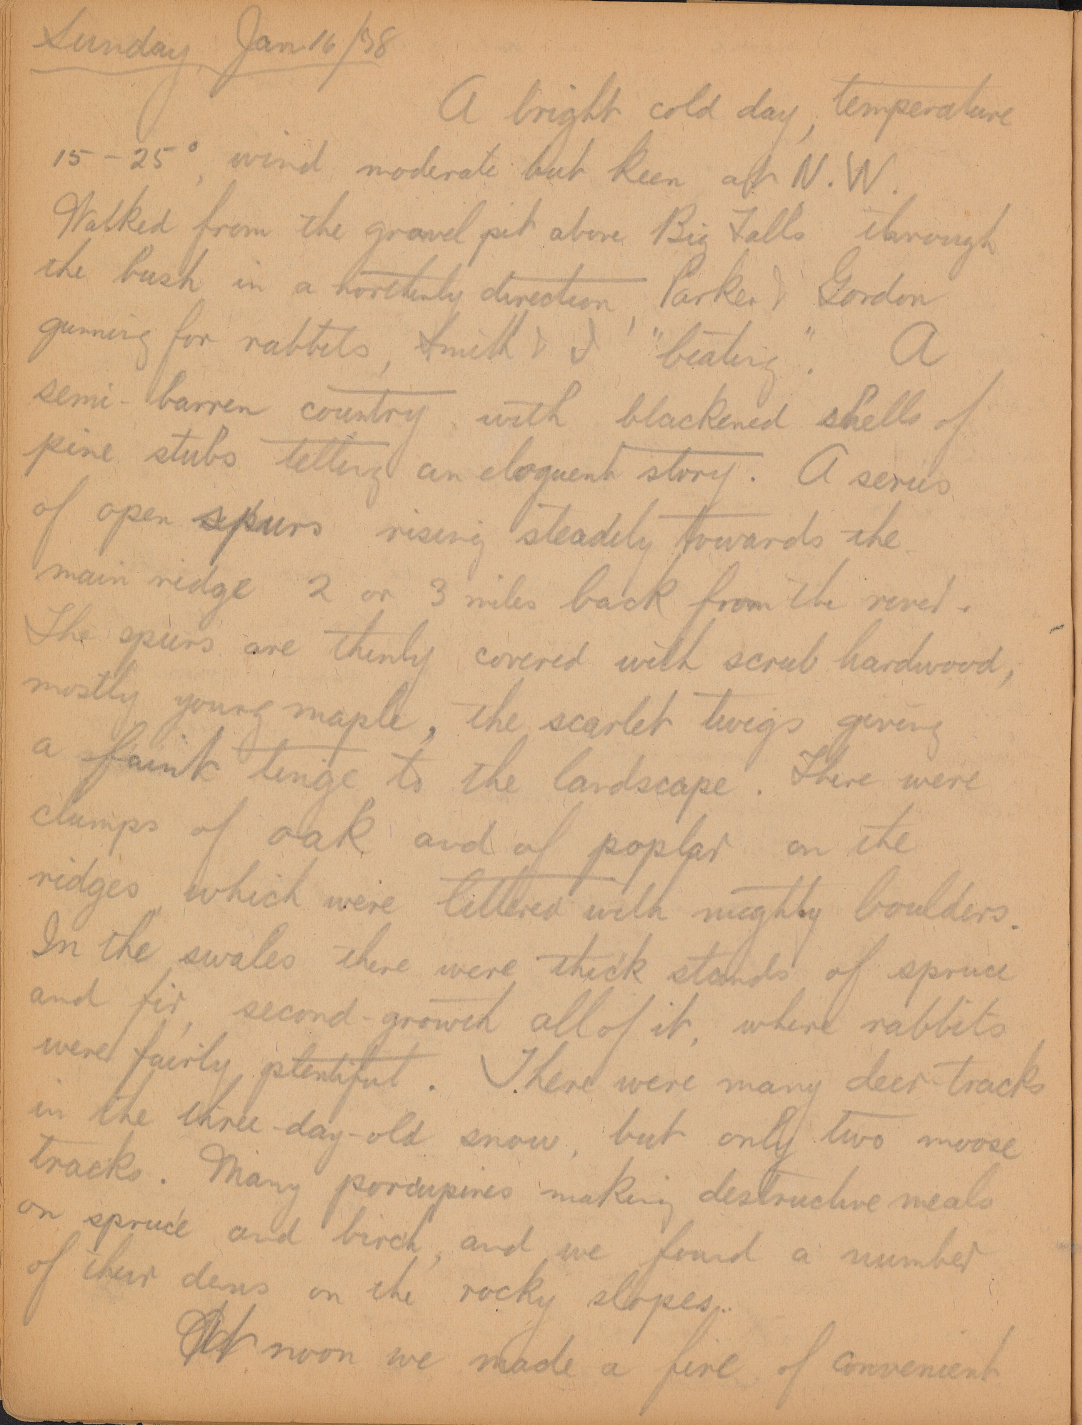 Sunday, Jan. 16/38
A bright cold day, temperature
15-25°, wind moderate but keen at N.W.
Walked from the gravel pit above Big Falls through
the bush in a northerly direction, Parker & Gordon
gunning for rabbits, Smith & I "beating". A
semi-barren country, with blackened shells of
pine stubs telling an eloquent story. A series
of open spurs rising steadily towards the
main ridge 2 or 3 miles back from the river.
The spurs are thinly covered with scrub hardwood,
mostly young maple, the scarlet twigs giving
a faint tinge to the landscape. There were
clumps of oak and of poplar on the
ridges, which were littered with mighty boulders.
In the swales there were thick stands of spruce
and fir, second-growth all of it, where rabbits
were fairly plentiful. There were many deer tracks
in the three-day-old snow, but only two moose
tracks. Many porcupines making destructive meals
on spruce and birch, and we found a number
of their dens on the rocky slopes.
At noon we made a fire of convenient